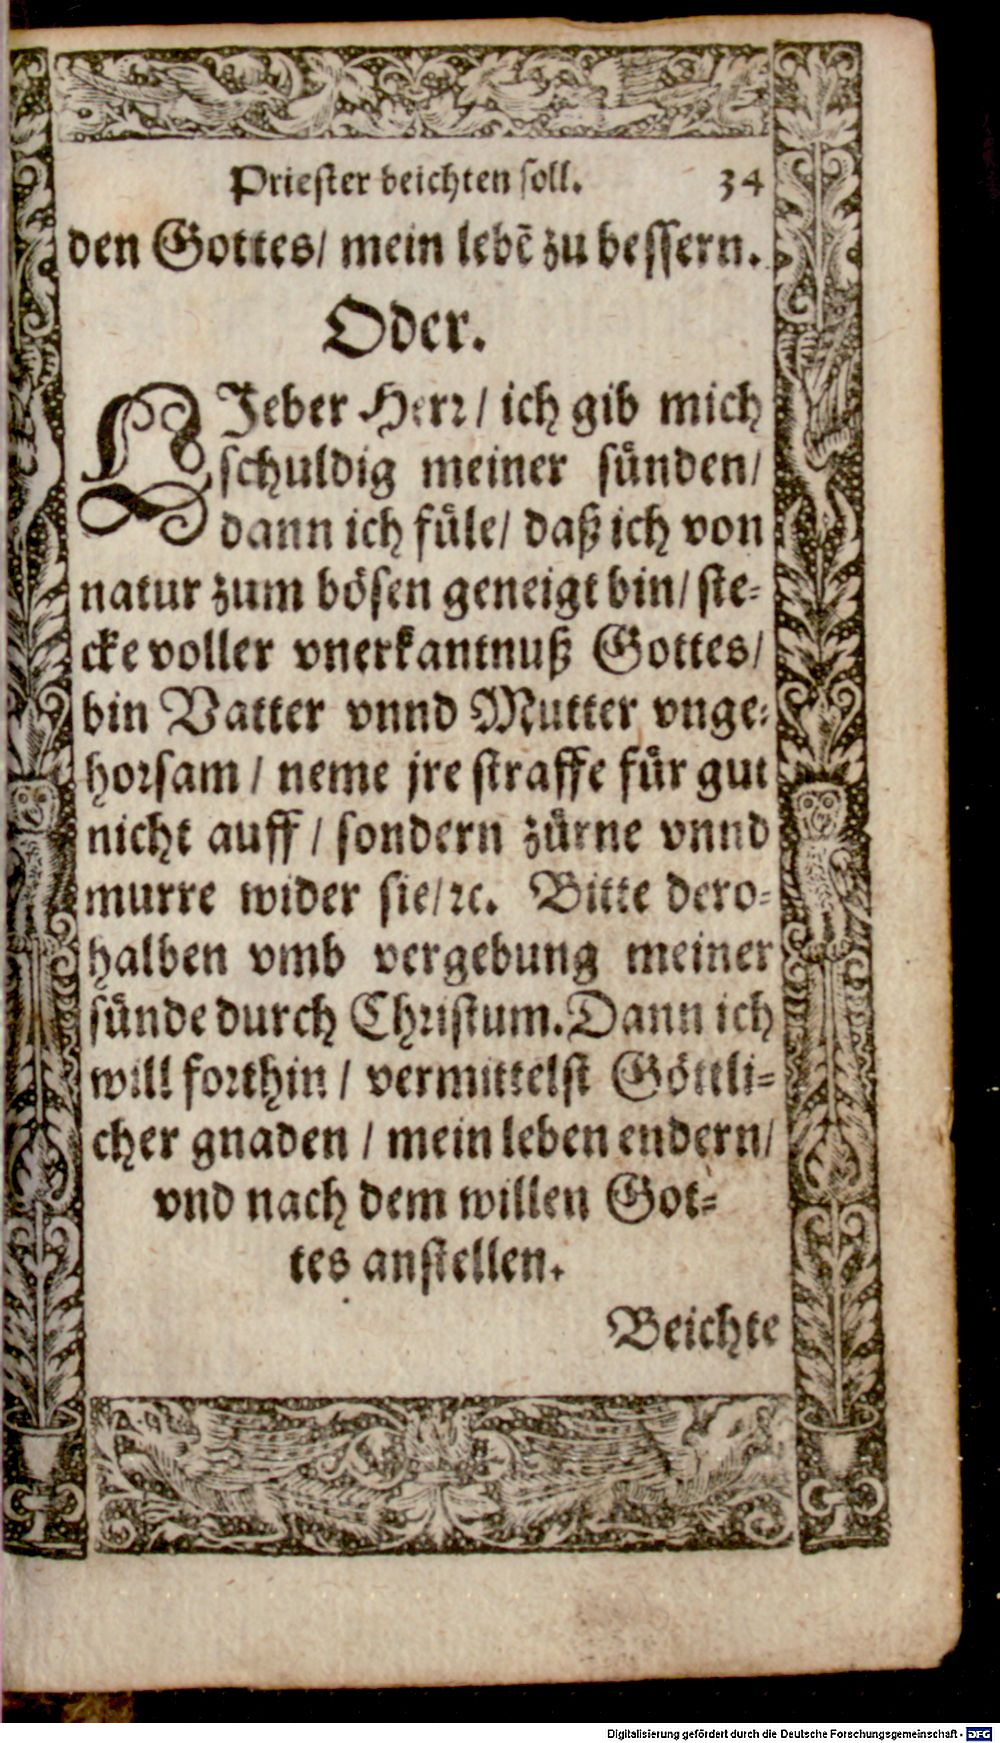 Priester beichten soll. 34
den Gottes/ mein lebẽ zu bessern.
Oder.
LJeber Herr/ ich gib mich
schuldig meiner sünden/
dann ich füle/ daß ich von
natur zum bösen geneigt bin/ ste-
cke voller vnerkantnuß Gottes/
bin Vatter vnnd Mutter vnge-
horsam / neme jre straffe für gut
nicht auff / sondern zürne vnnd
murre wider sie/ ꝛc. Bitte dero-
halben vmb vergebung meiner
sünde durch Christum. Dann ich
will forthin / vermittelst Göttli-
cher gnaden / mein leben endern/
vnd nach dem willen Got-
tes anstellen.
Beichte
Digitalisierung gefördert durch die Deutsche Forschungsgemeinschaft - DFG